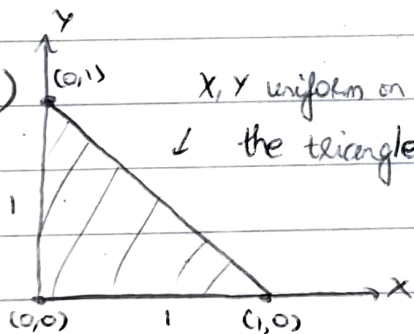 Y
)
(0,1)
X, Y uniform on
↙ the triangle
1
X
(0,0)
1
(1,0)